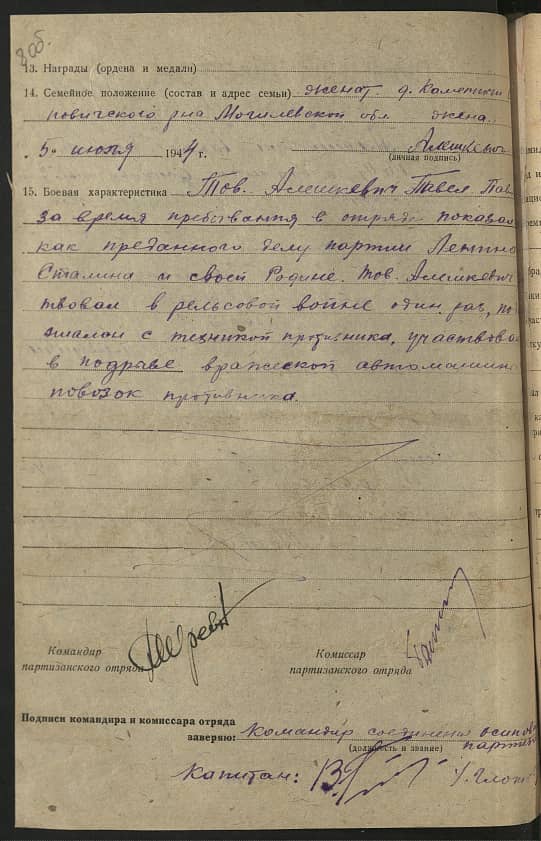 8 об.
13. Награды (ордена и медали)
14. Семейное положение (состав и адрес семьи) женат д. Каменки
ровичского р-на Могилевской обл. жена
"5" июля 1944 г. Алешкевич
(личная подпись)
15. Боевая характеристика Тов. Алешкевич Павел Пав
за время пребывания в отряде показал
как преданного делу партии Ленина
Сталина и своей Родине. Тов. Алешкевич
твовал в рельсовой войне один раз, по
эшалон с техникой противника, участвова
в подрыве вражеской автомашин
повозок противника.
Командир
партизанского отряда
Комиссар
партизанского отряда
Подписи командира и комиссара отряда
заверяю: Командир соединения осипов
(должность и звание) партиз
Капитан: